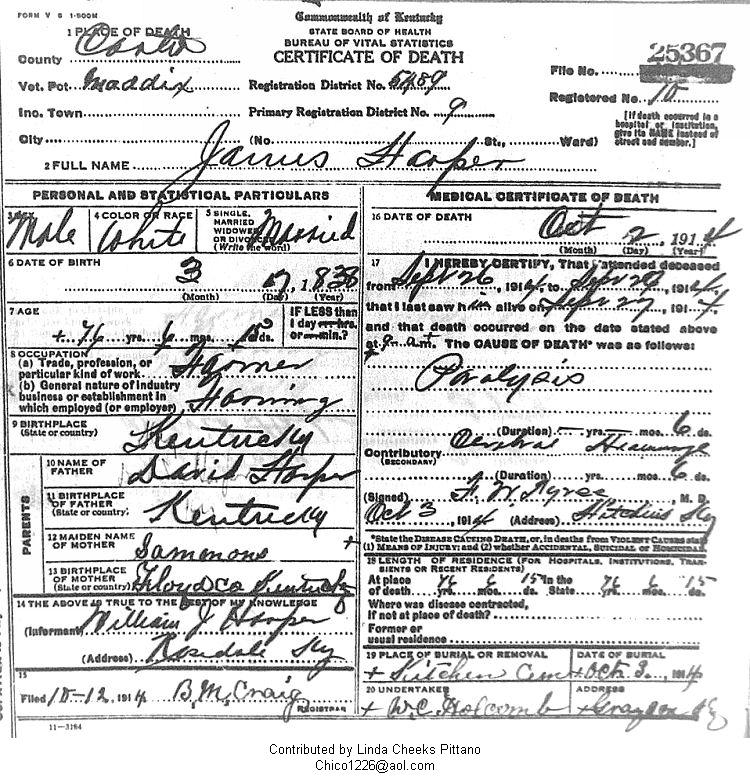 FORM V S 1-500M
Commonwealth of Kentucky
STATE BOARD OF HEALTH
BUREAU OF VITAL STATISTICS
CERTIFICATE OF DEATH
1 PLACE OF DEATH
County Carter
Vot. Pct. Maddix
Inc. Town
City (No. St., Ward)
Registration District No. 5489
Primary Registration District No. 9
File No. 25367
Registered No. 10
[If death occurred in a hospital or institution, give its NAME instead of street and number.]
2 FULL NAME James Harper
PERSONAL AND STATISTICAL PARTICULARS
3 SEX Male
4 COLOR OR RACE White
5 SINGLE, MARRIED WIDOWED OR DIVORCED (Write the word) Married
6 DATE OF BIRTH
3 17, 1838
(Month) (Day) (Year)
7 AGE
76 yrs. 6 mos. 15 ds.
IF LESS than
1 day hrs.
or min.?
8 OCCUPATION
(a) Trade, profession, or
particular kind of work Farmer
(b) General nature of industry
business or establishment in
which employed (or employer) Farming
9 BIRTHPLACE
(State or country) Kentucky
PARENTS
10 NAME OF
FATHER David Harper
11 BIRTHPLACE
OF FATHER
(State or country) Kentucky
12 MAIDEN NAME
OF MOTHER Sammons
13 BIRTHPLACE
OF MOTHER
(State or country) Floyd co Kentucky
14 THE ABOVE IS TRUE TO THE BEST OF MY KNOWLEDGE
(Informant) William J Harper
(Address) Rosedale Ky
15
Filed 10-12, 1914 B.M. Craig
REGISTRAR
11-3184
MEDICAL CERTIFICATE OF DEATH
16 DATE OF DEATH
Oct 2, 1914
(Month) (Day) (Year)
17 I HEREBY CERTIFY, That I attended deceased
from Sept 26, 1914, to Sept 29, 1914,
that I last saw him alive on Sept 29, 1914
and that death occurred on the date stated above
at 9 a.m. The CAUSE OF DEATH* was as follows:
Paralysis
(Duration) yrs. mos. 6 ds.
Contributory Cerebral
(SECONDARY)
(Duration) yrs. mos. 6 ds.
(Signed) M. D.
Oct 3, 1914 (Address) Hitchins Ky
*State the DISEASE CAUSING DEATH, or, in deaths from VIOLENT CAUSES state
(1) MEANS OF INJURY; and (2) whether ACCIDENTAL, SUICIDAL or HOMICIDAL.
18 LENGTH OF RESIDENCE (FOR HOSPITALS, INSTITUTIONS, TRAN-
SIENTS OR RECENT RESIDENTS)
At place 76 6 15 In the 76 6 15
of death yrs. mos. ds. State yrs. mos. ds.
Where was disease contracted,
if not at place of death?
Former or
usual residence
19 PLACE OF BURIAL OR REMOVAL
Kitchen Cem
DATE OF BURIAL
Oct 3, 1914
20 UNDERTAKER
W.C. Holcomb
ADDRESS
Grayson Ky
Contributed by Linda Cheeks Pittano
Chico1226@aol.com